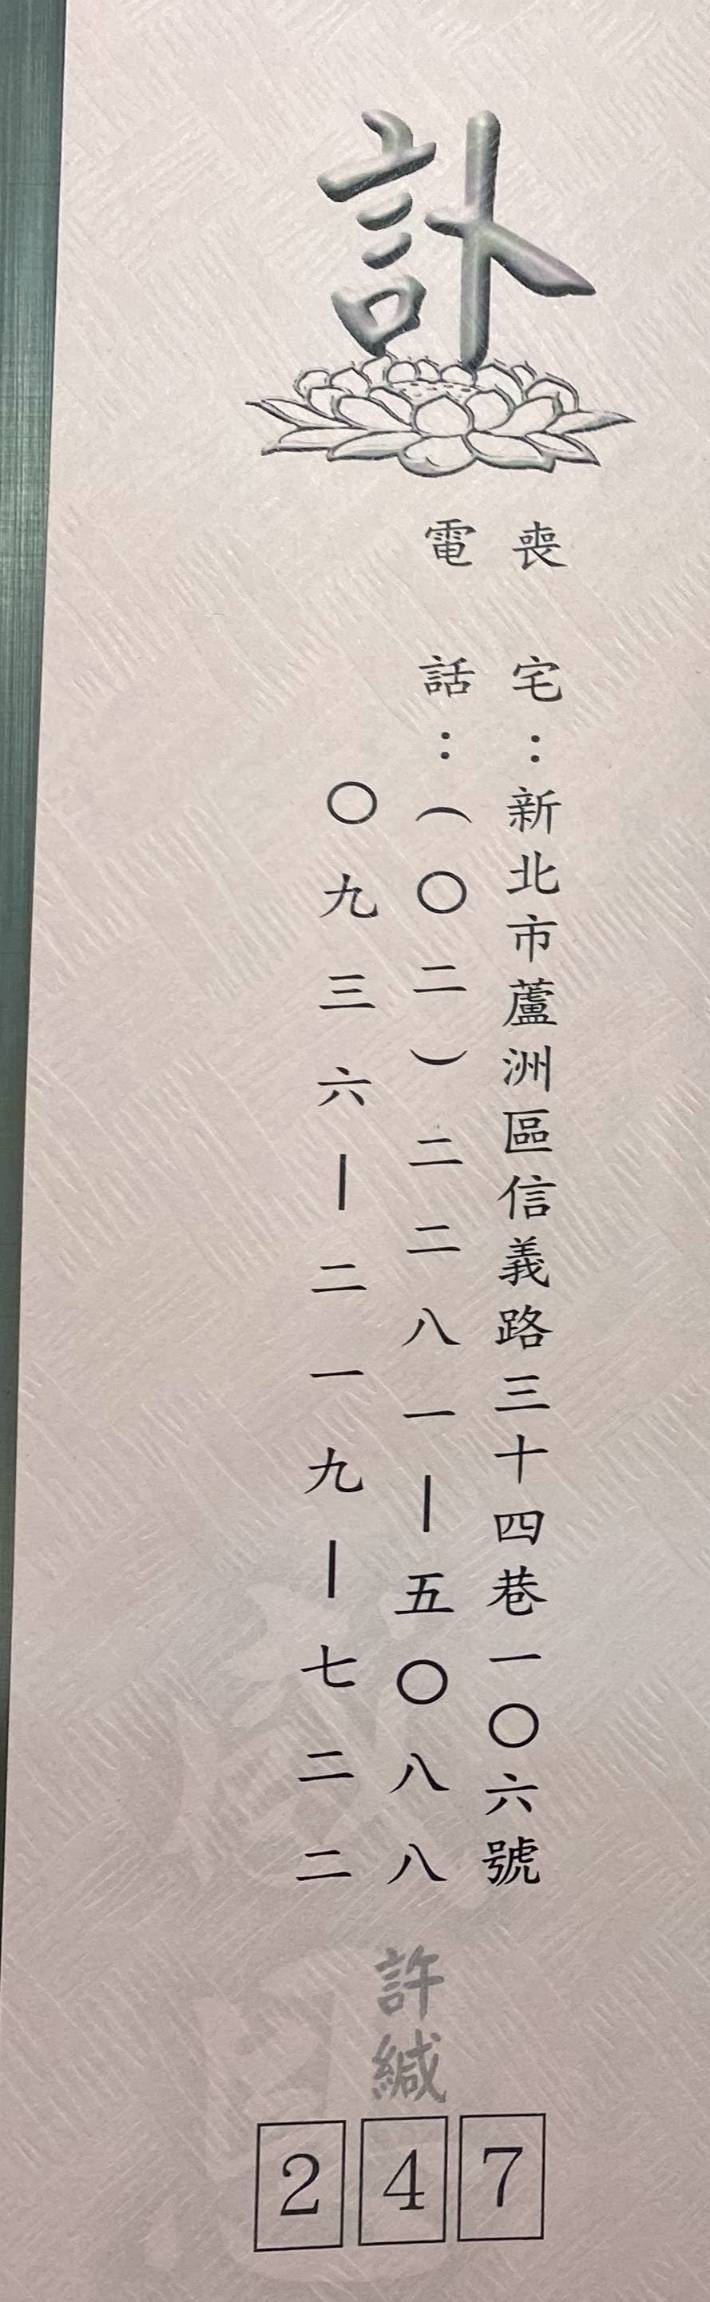 訃
喪宅：新北市蘆洲區信義路三十四巷一〇六號
電話：（〇二）二二八一－五〇八八
〇九三六－二一九－七二二
許緘
247